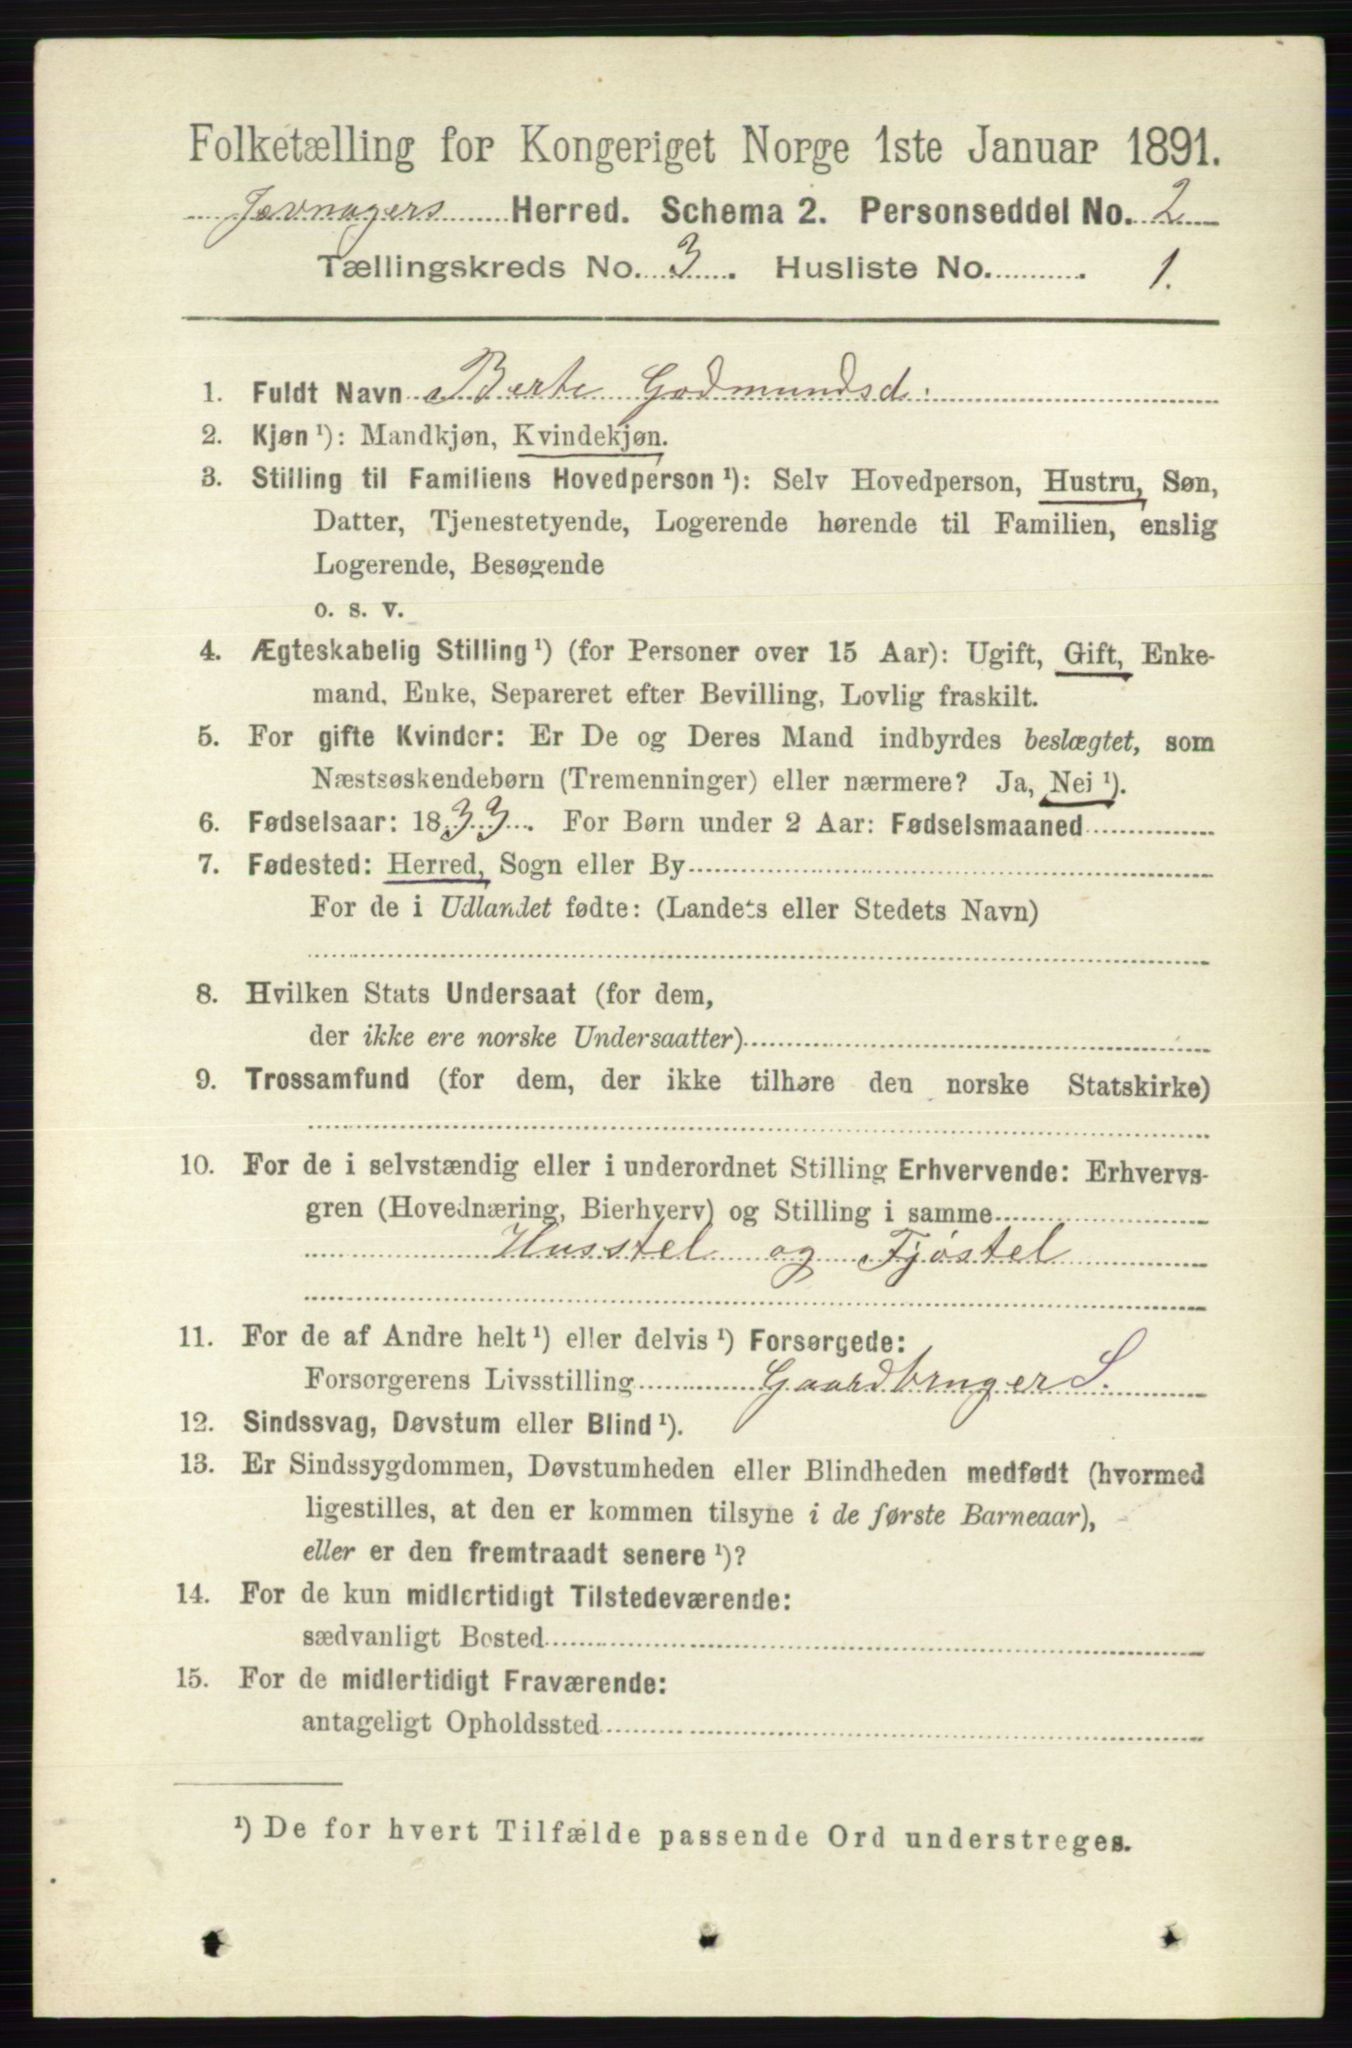 Folketælling for Kongeriget Norge 1ste Januar 1891.
Jævnagers Herred. Schema 2. Personseddel No. 2
Tællingskreds No. 3. Husliste No. 1.
1. Fuldt Navn Berte Godmundsd.
2. Kjøn ¹): Mandkjøn, Kvindekjøn.
3. Stilling til Familiens Hovedperson ¹): Selv Hovedperson, Hustru, Søn,
Datter, Tjenestetyende, Logerende hørende til Familien, enslig
Logerende, Besøgende
o. s. v.
4. Ægteskabelig Stilling ¹) (for Personer over 15 Aar): Ugift, Gift, Enke-
mand, Enke, Separeret efter Bevilling, Lovlig fraskilt.
5. For gifte Kvinder: Er De og Deres Mand indbyrdes beslægtet, som
Næstsøskendebørn (Tremenninger) eller nærmere? Ja, Nei ¹).
6. Fødselsaar: 1833. For Børn under 2 Aar: Fødselsmaaned
7. Fødested: Herred, Sogn eller By
For de i Udlandet fødte: (Landets eller Stedets Navn)
8. Hvilken Stats Undersaat (for dem,
der ikke ere norske Undersaatter)
9. Trossamfund (for dem, der ikke tilhøre den norske Statskirke)
10. For de i selvstændig eller i underordnet Stilling Erhvervende: Erhvervs-
gren (Hovednæring, Bierhverv) og Stilling i samme
Husstel og Fjøstel
11. For de af Andre helt ¹) eller delvis ¹) Forsørgede:
Forsørgerens Livsstilling Gaardbruger S.
12. Sindssvag, Døvstum eller Blind ¹).
13. Er Sindssygdommen, Døvstumheden eller Blindheden medfødt (hvormed
ligestilles, at den er kommen tilsyne i de første Barneaar),
eller er den fremtraadt senere ¹)?
14. For de kun midlertidigt Tilstedeværende:
sædvanligt Bosted
15. For de midlertidigt Fraværende:
antageligt Opholdssted
¹) De for hvert Tilfælde passende Ord understreges.